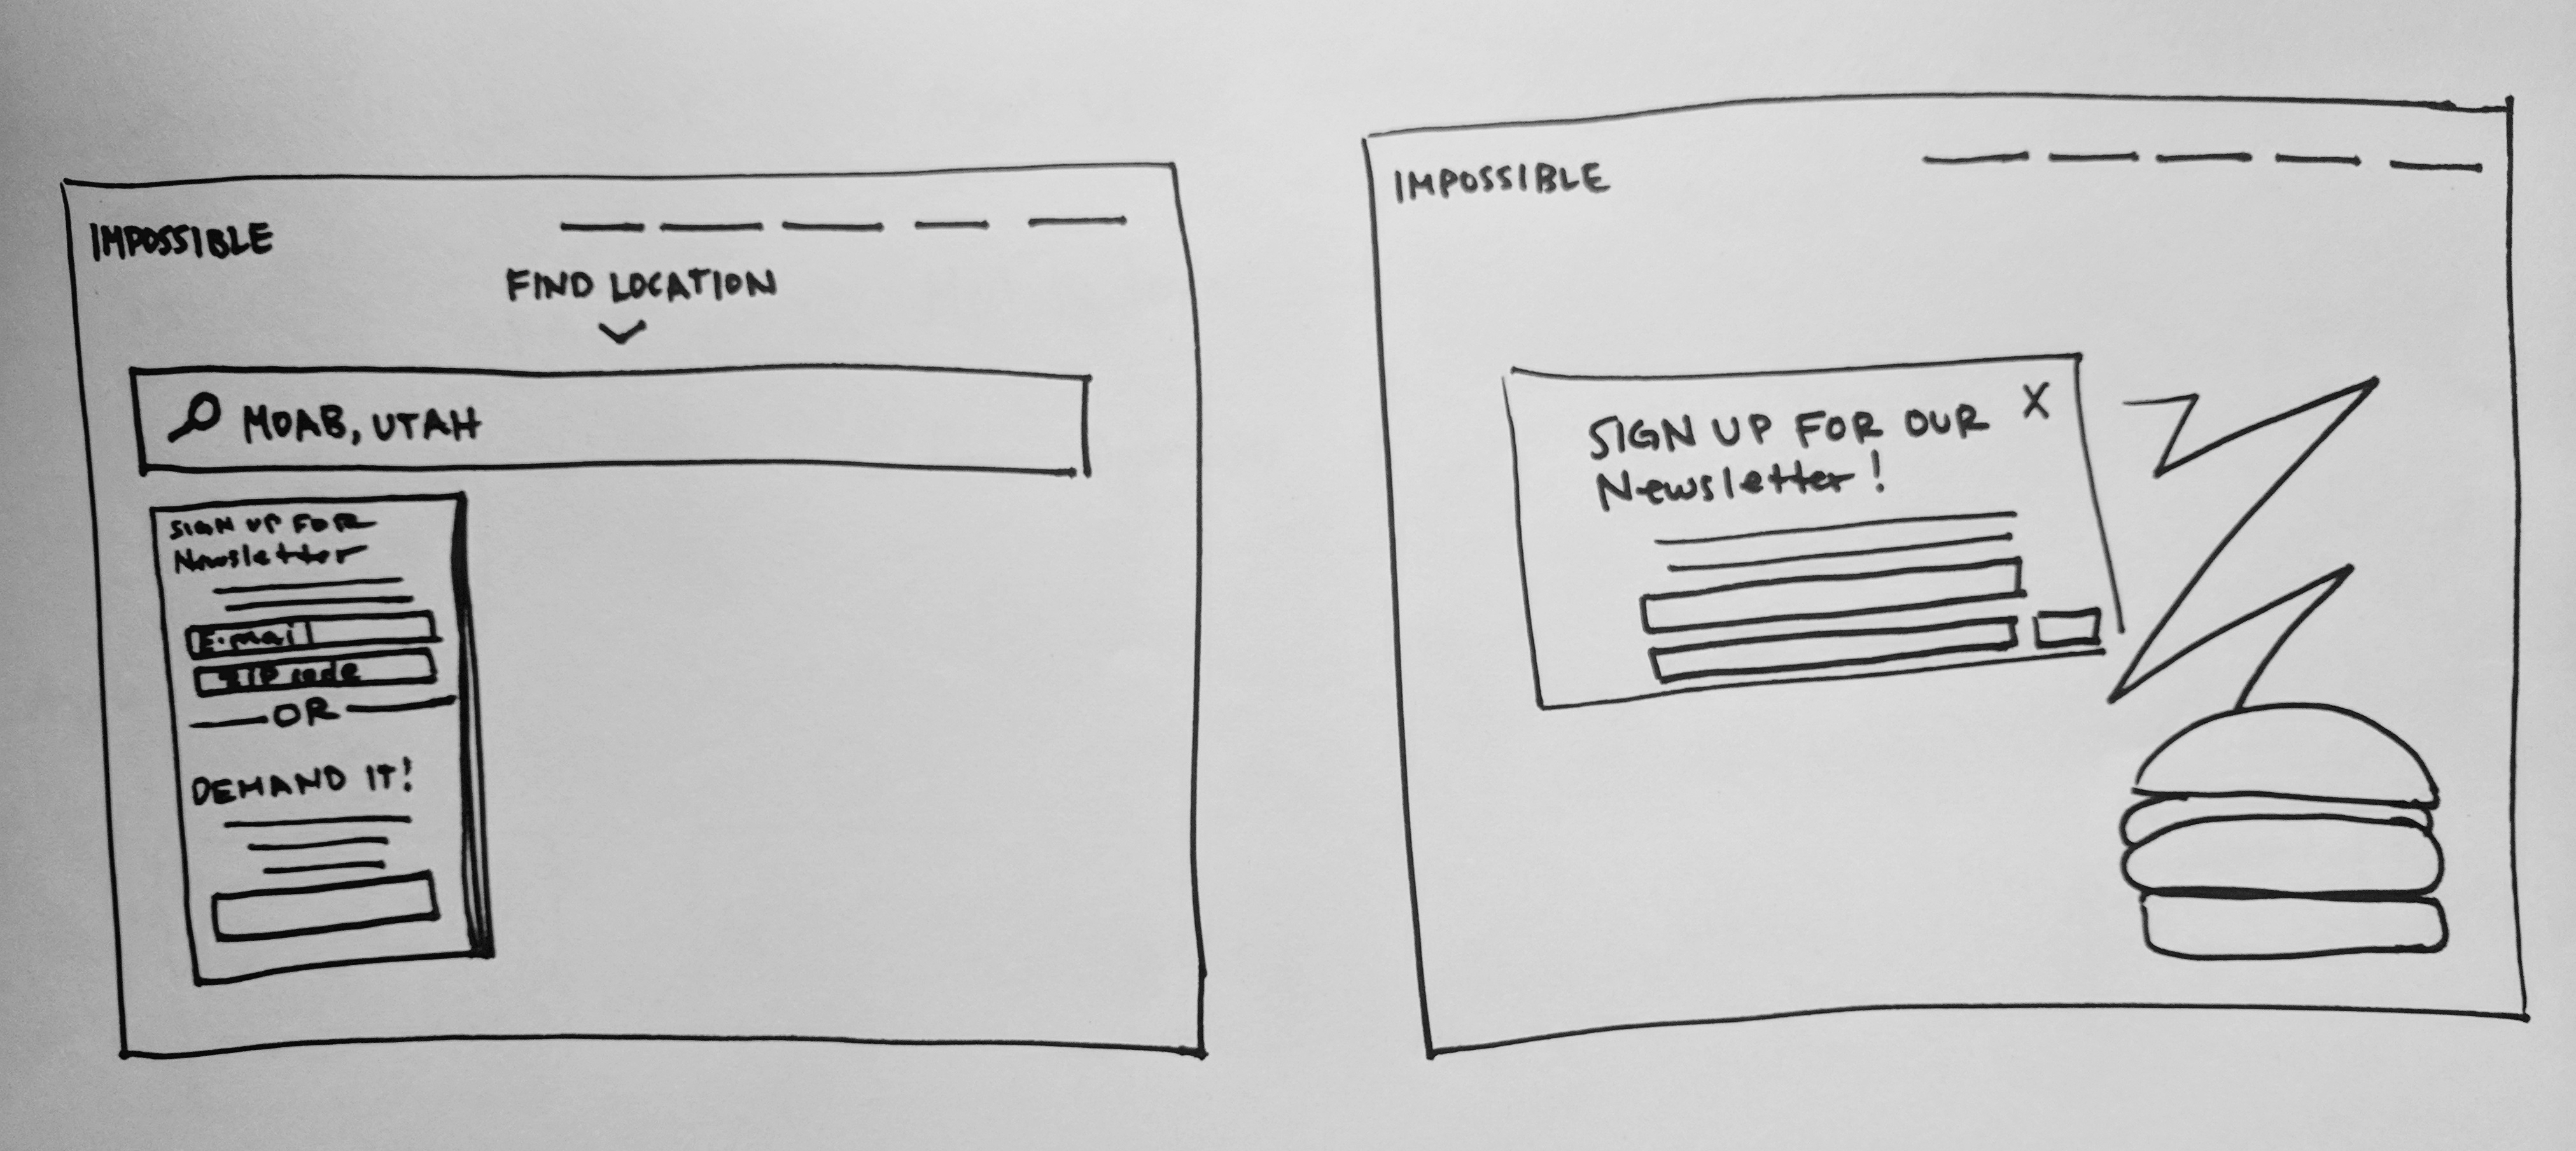 IMPOSSIBLE
FIND LOCATION
MOAB, UTAH
SIGN UP FOR
Newsletter
E-mail
ZIP code
OR
DEMAND IT!
IMPOSSIBLE
SIGN UP FOR OUR X
Newsletter!